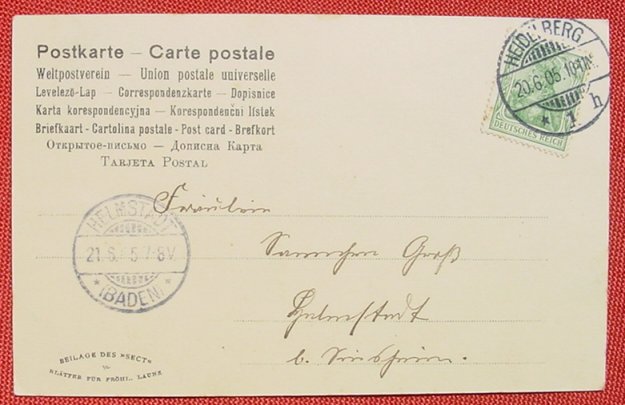 Postkarte – Carte postale
Weltpostverein — Union postale universelle
Levelező-Lap — Correspondenzkarte — Dopisnice
Karta korespondencyjna — Korespondenční lístek
Briefkaart - Cartolina postale - Post card - Brefkort
Открытое-письмо — Дописна Карта
Tarjeta Postal
HEIDELBERG
20.6.05.10
* 1. h
DEUTSCHES REICH
Fräulein
HELMSTADT
21.6.05 7-8V
* (BADEN) *
Groß
Helmstadt
b. Sinsheim.
BEILAGE DES »SECT«
BLÄTTER FÜR FRÖHL. LAUNE